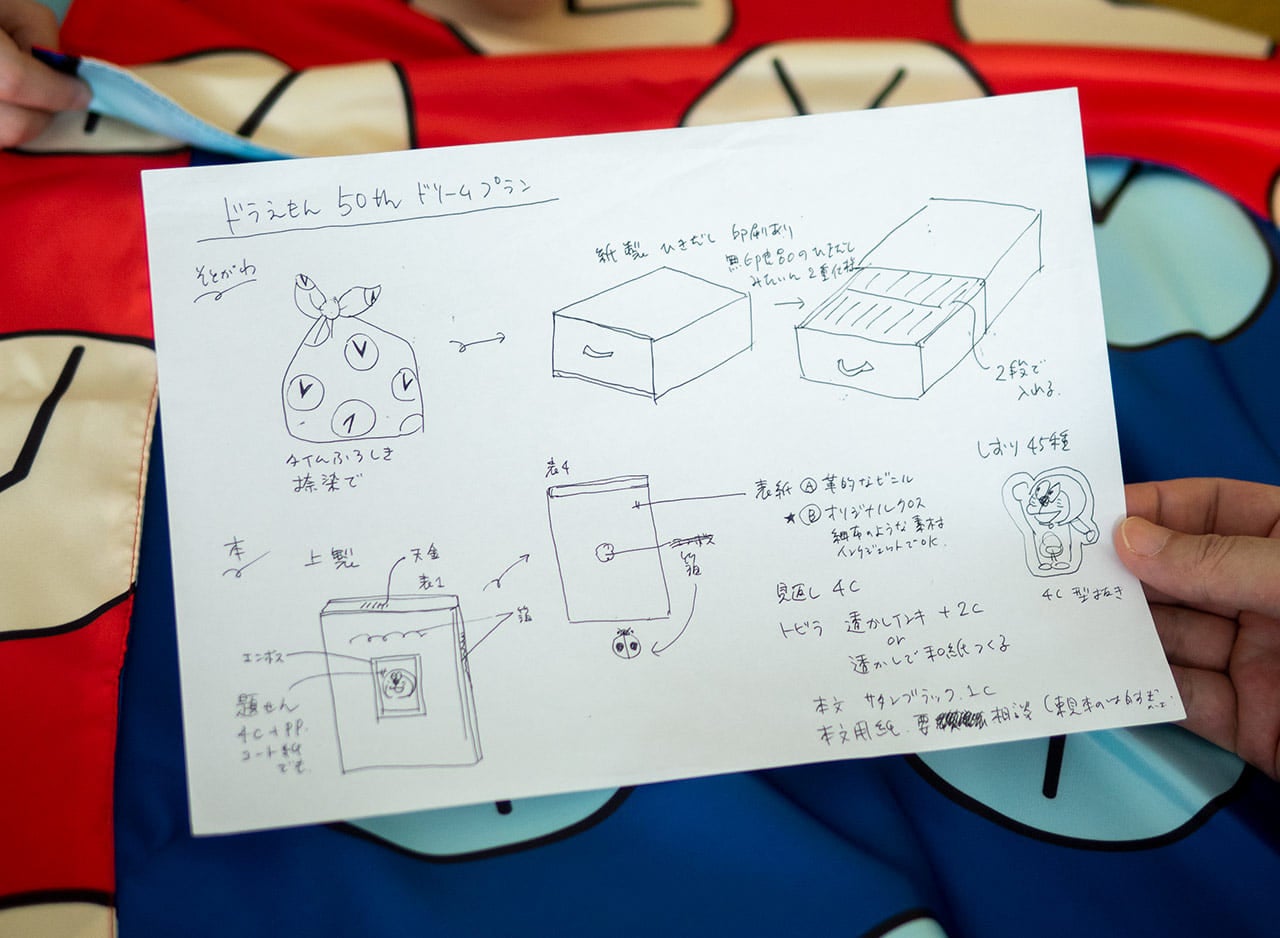 ドラえもん 50th ドリームプラン
そとがわ
タイムふろしき
捺染で
紙製 ひきだし 印刷あり
無印良品のひきだし
みたいな 2重仕様
2段で
入れる
本
上製
天金
表1
箔
エンボス
題せん
4C+PP.
コート紙
でも.
表4
箔
表紙 Ⓐ 革的なビニル
★Ⓑ オリジナルクロス
綿布のような素材
インクジェットでOK.
見返し 4C
トビラ 透かしインキ +2C
or
透かしで和紙つくる
本文 サタンブラック.1C
本文用紙. 要相談 (束見本のは
しおり 45種
4C 型抜き